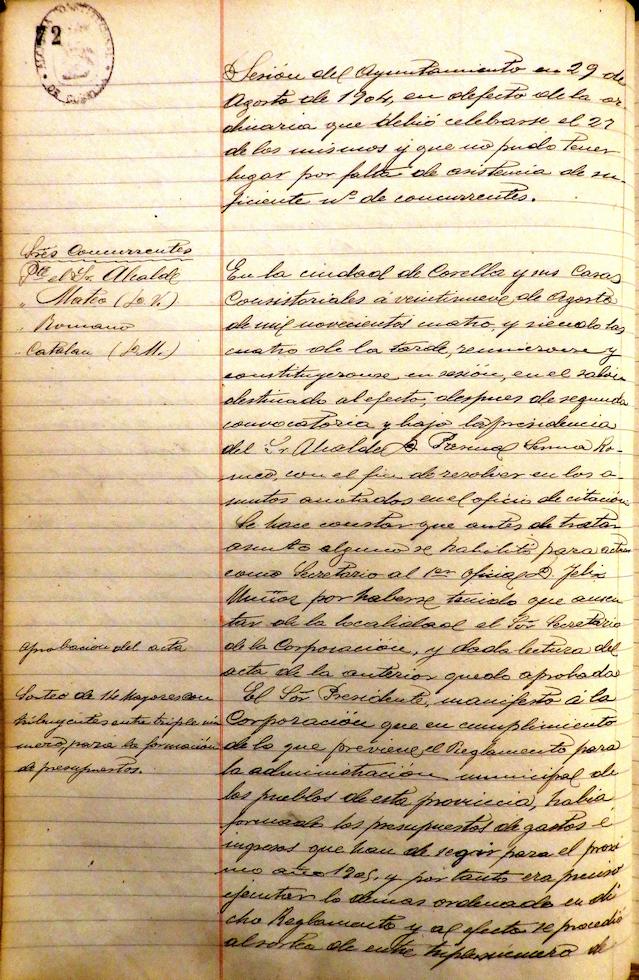 2
ALCALDIA CONSTITUCIONAL
DE CORELLA
Sesión del Ayuntamiento en 29 de
Agosto de 1904, en defecto de la or-
dinaria que debió celebrarse el 27
de los mismos y que no pudo tener
lugar por falta de asistencia de su-
ficiente nº de concurrentes.
Sres Concurrentes
Pte el Sr. Alcalde
" Mateo (
" Romano
" Catalan (
En la ciudad de Corella y sus Casas
Consistoriales á veintinueve de Agosto
de mil novecientos cuatro, y siendo las
cuatro de la tarde, reunieronse y
constituyeronse en sesión, en el salón
destinado al efecto, despues de segunda
convocatoria y bajo la presidencia
del Sr. Alcalde D.
con el fin de resolver en los a-
suntos anotados en el oficio de citación
Se hace constar que antes de tratar
asunto alguno se habilitó para actuar
como Secretario al 1er oficial D. Felix
Muñoz por haberse tenido que ausen-
tar de la localidad el Sor. Secretario
aprobacion del acta
de la Corporación, y dada lectura del
acta de la anterior quedo aprobada
Sorteo de 14 Mayores con
tribuyentes entre triple nú
mero, para la formación
de presupuestos.
El Sor Presidente, manifesto á la
Corporación que en cumplimiento
de lo que previene el Reglamento para
la administración municipal de
los pueblos de esta provincia, habia
formado los presupuestos de gastos e
ingresos que han de regir para el proxi
mo año 1905, y por tanto era preciso
ejecutar lo demas ordenado en di
cho Reglamento y al efecto se procedió
al sorteo de entre triple número de